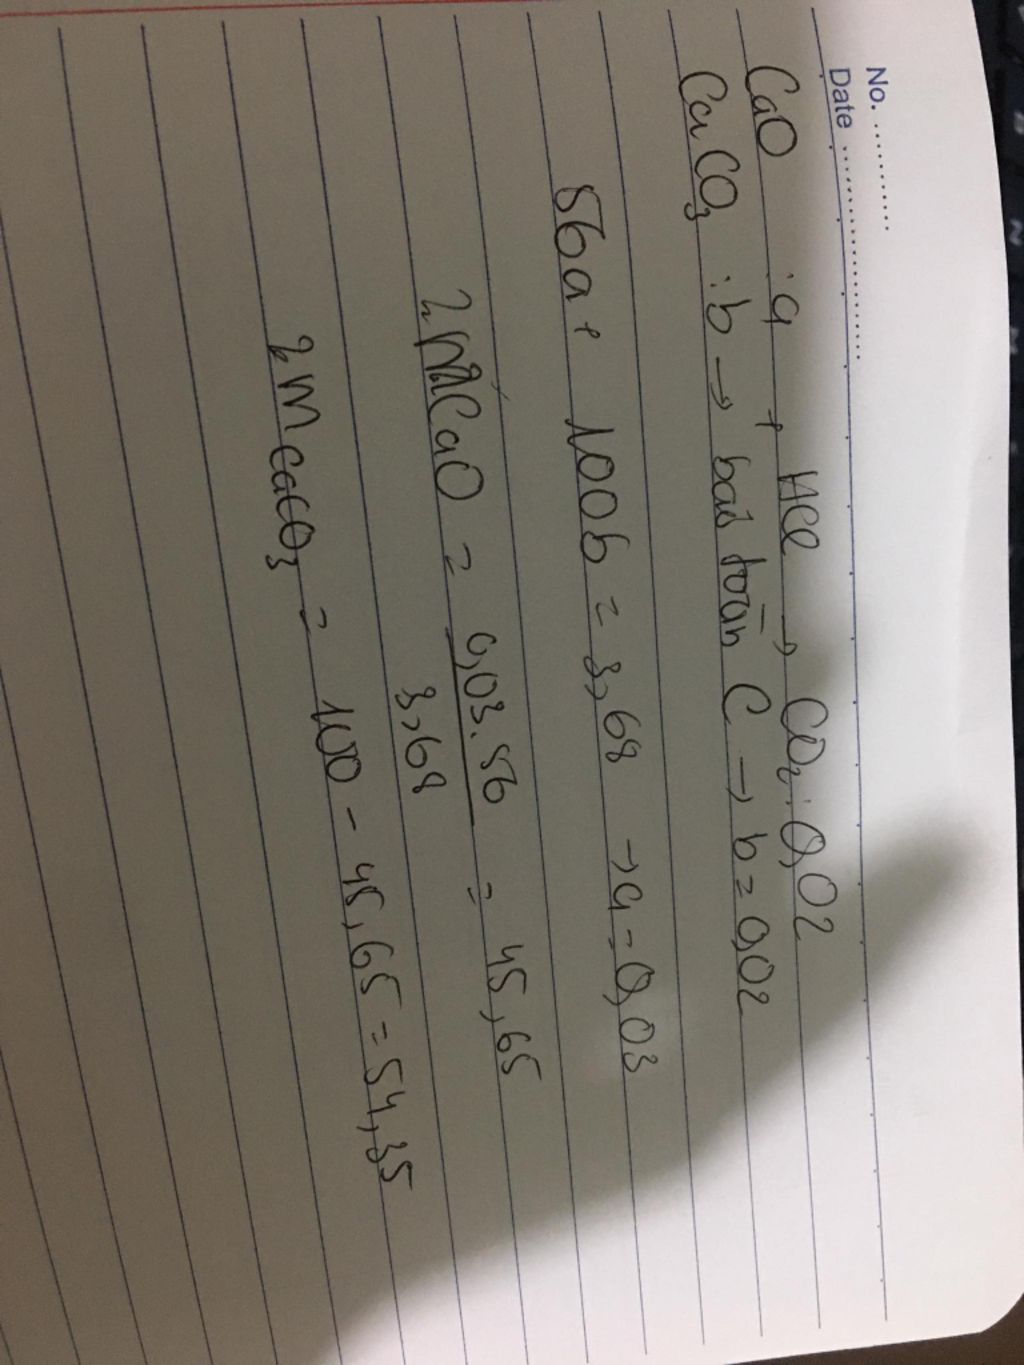 No. ............
Date ........................
CaO : a + HCl → CO₂ : 0,02
CaCO₃ : b → bảo toàn C → b = 0,02
56a + 100b = 3,68 → a = 0,03
% mCaO = 0,03.56 / 3,68 = 45,65
% mCaCO₃ = 100 - 45,65 = 54,35